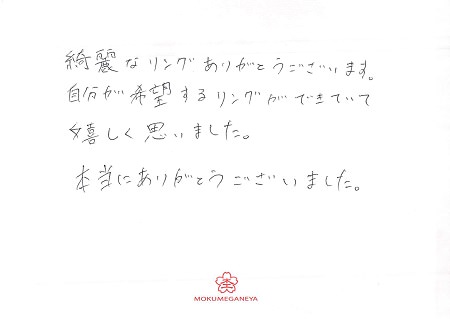 綺麗なリングありがとうございます。
自分が希望するリングができていて
嬉しく思いました。
本当にありがとうございました。
MOKUMEGANEYA